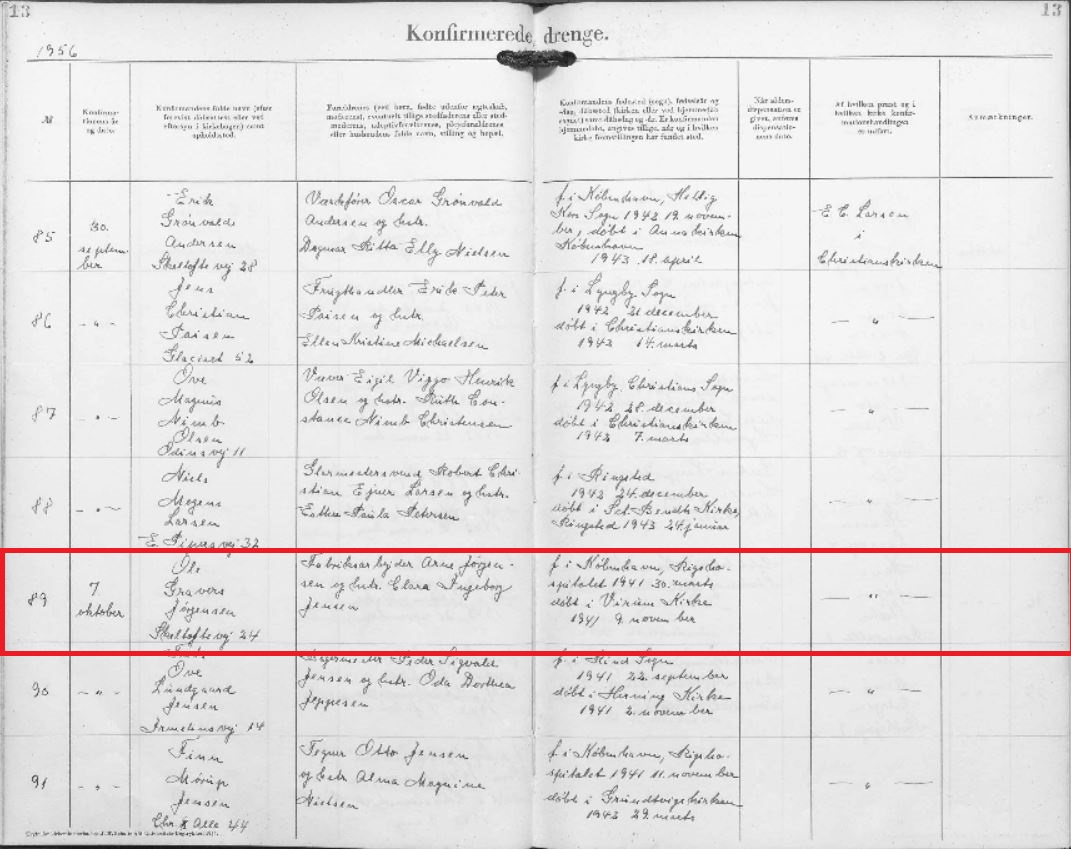 13
13
Konfirmerede drenge.
1956
№
Konfirma-
tionens år
og dato.
Konfirmandens fulde navn (efter
forevist dåbsattest eller ved
eftersyn i kirkebogen) samt
opholdssted.
Forældrenes (ved børn, fødte udenfor ægteskab,
moderens, eventuelt tillige stedfaderens eller sted-
moderens, adoptivforældrenes, plejeforældrenes
eller husbondens fulde navn, stilling og bopæl.
Konfirmandens fødested (sogn), fødselsår og
-dag, dåbssted (kirken eller ved hjemmedåb
sognet) samt dåbsdag og år. Er konfirmanden
hjemmedøbt, angives tillige, når og i hvilken
kirke fremstillingen har fundet sted.
Når alders-
dispensation er
given, anføres
dispensatio-
nens dato.
Af hvilken præst og i
hvilken kirke konfir-
mationshandlingen
er udført.
Anmærkninger.
85
30.
septem
ber
Erik
Grønvalds
Andersen
Skeltofte vej 28
Værkfører Oscar Grønvalds
Andersen og hstr.
Dagmar Ritta Elly Nielsen
f. i København, Hellig
Kors Sogn 1942 19. novem-
ber, døbt i Annakirken
København
1943 18. april
E C. Larsen
i
Christianskirken
86
- " -
Jens
Christian
Paisen
Glaciset 52
Frugthandler Erik Peter
Paisen og hstr.
Ellen Kristine Michaelsen
f. i Lyngby Sogn
1942 21. december
døbt i Christianskirken
1943 14. marts
— " —
87
- " -
Ove
Magnus
Nimb
Olsen
Odinsvej 11
Eigil Viggo Henrik
Olsen og hstr. Ruth Con-
stance Nimb Christensen
f. i Lyngby, Christians Sogn
1942 28. december
døbt i Christianskirken
1943 7. marts
— " —
88
- " -
Niels
Mogens
Larsen
E. Pipersvej 32
Glarmestersvend Robert Chri-
stian Ejner Larsen og hstr.
Esther Paula Petersen
f. i Ringsted
1942 24. december
døbt i Sct. Bendts Kirke,
Ringsted 1943 24. januar
— " —
89
7
oktober
Ole
Gravers
Jørgensen
Skeltofte vej 24
Fabriksarbejder Arne Jørgen-
sen og hstr. Clara Ingeborg
Jensen
f. i København, Rigsho-
spitalet 1941 30. marts
døbt i Virum Kirke
1941 9. november
— " —
90
- " -
Ove
Lundgaard
Jensen
Irmelinsvej 14
Lagermester Peder Sigvald
Jensen og hstr. Oda Dorthea
Jeppesen
f. i Rind Sogn
1941 22. september
døbt i Herning Kirke
1941 2. november
— " —
91
- " -
Finn
Mørup
Jensen
Chr X Alle 44
Tegner Otto Jensen
og hstr Alma Magnine
Nielsen
f. i København, Rigsho-
spitalet 1941 11. november
døbt i Grundtvigskirken
1942 29. marts
— " —